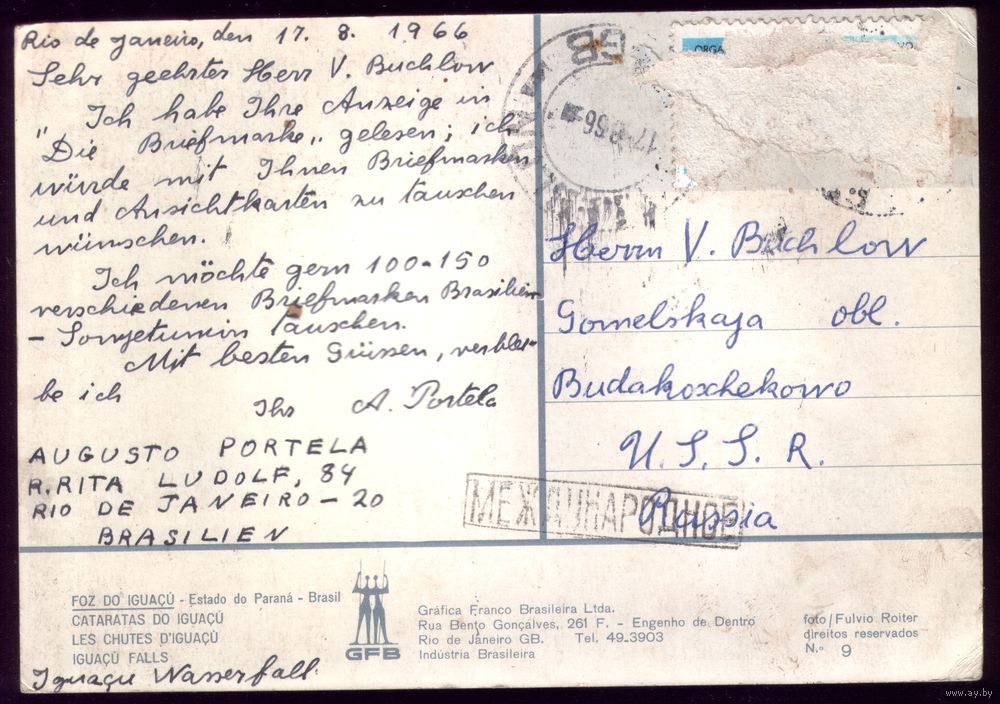 Rio de Janeiro, den 17. 8. 1966
Sehr geehrter Herr V. Buchlow
Ich habe Ihre Anzeige in
"Die Briefmarke„ gelesen; ich
würde mit Ihnen Briefmarken
und Ansichtkarten zu tauschen
wünschen.
Ich möchte gern 100-150
verschiedenen Briefmarken Brasilien
- Sowjetunion tauschen.
Mit besten Güssen, verblei-
be ich
Ihr A. Portela
AUGUSTO PORTELA
R. RITA LUDOLF, 84
RIO DE JANEIRO - 20
BRASILIEN
ORGA
GB
17
Herrn V. Buchlow
Gomelskaja obl.
Budakoxhekowo
U. S. S. R.
Russia
МЕЖДУНАРОДНОЕ
FOZ DO IGUAÇÚ - Estado do Paraná - Brasil
CATARATAS DO IGUAÇÚ
LES CHUTES D'IGUAÇÚ
IGUAÇÚ FALLS
Iguaçu Wasserfall
GFB
Gráfica Franco Brasileira Ltda.
Rua Bento Gonçalves, 261 F. - Engenho de Dentro
Rio de Janeiro GB. Tel. 49.3903
Indústria Brasileira
foto/Fulvio Roiter
direitos reservados
N.º 9
www.ay.by